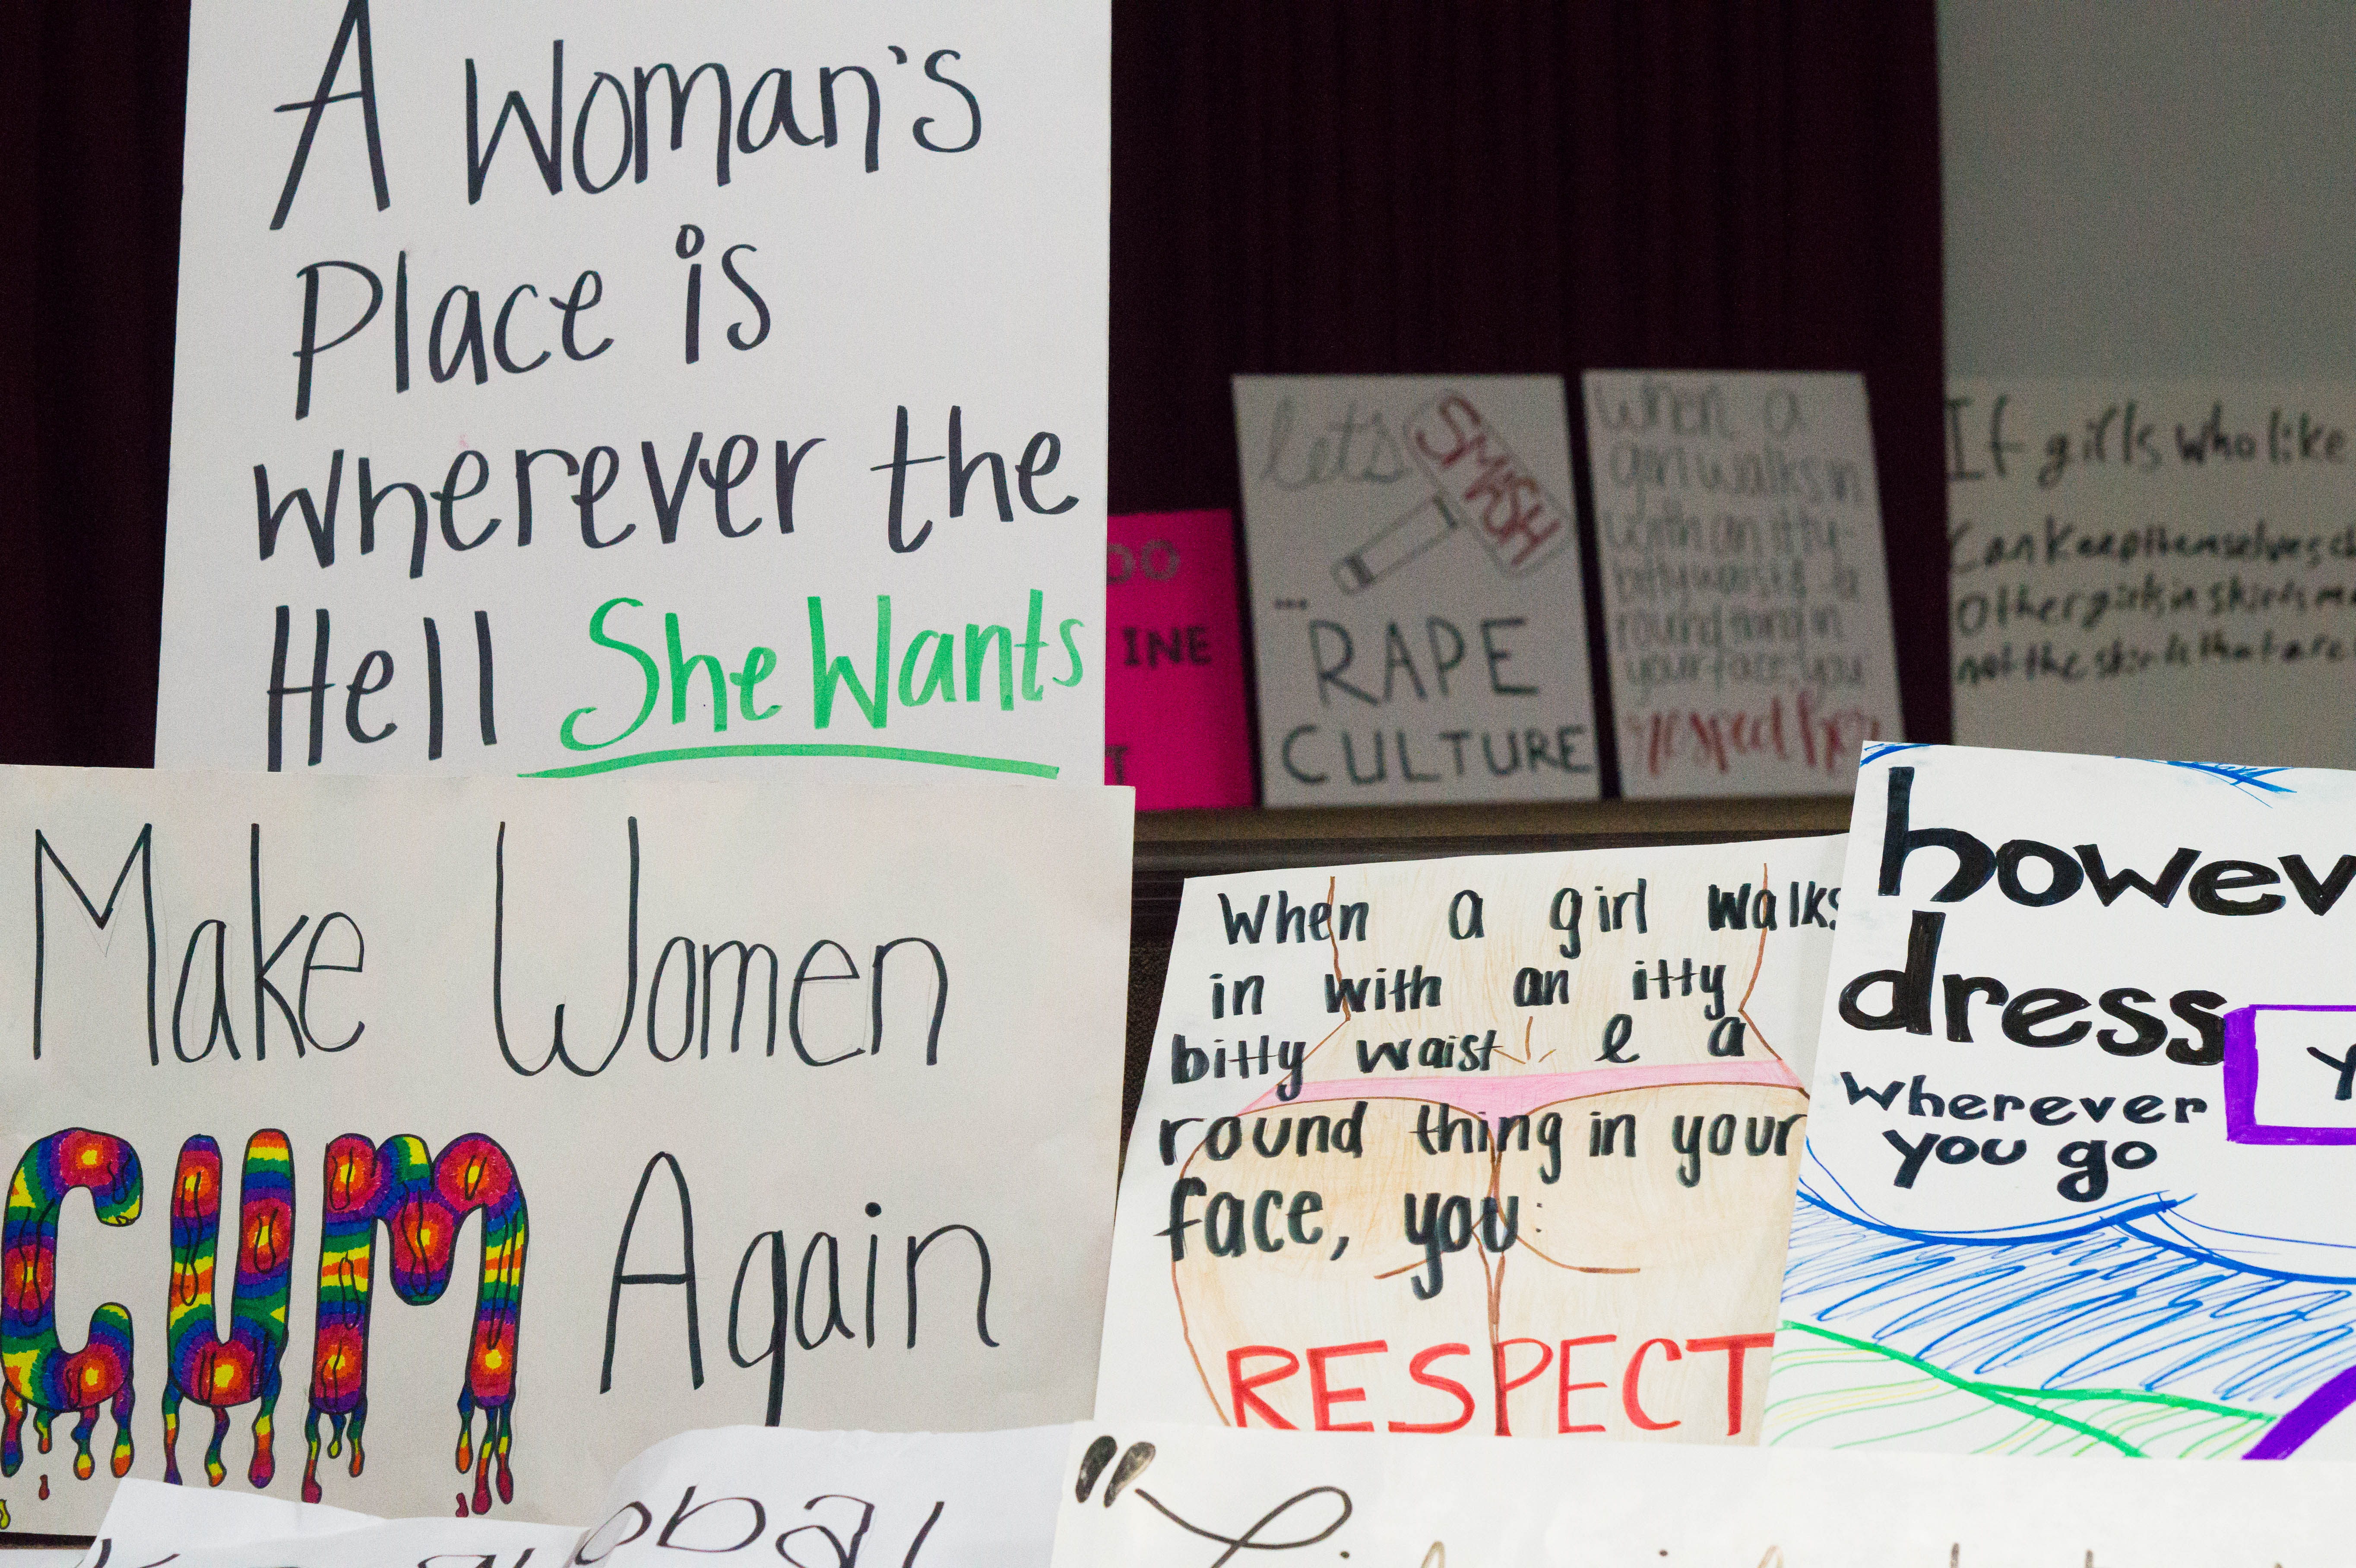 A Woman's
Place is
wherever the
Hell She Wants
Make Women
CUM Again
OO
INE
T
let's SMASH
...
RAPE
CULTURE
when a
girl walks in
with an itty
bitty waist & a
round thing in
your face, you
respect her
If girls who like
Can keep themselves
Other girls in skirts
not the skirts that are
When a girl walks
in with an itty
bitty waist & a
round thing in your
face, you:
RESPECT
howev
dress
wherever
you go
Y
obal
"Li